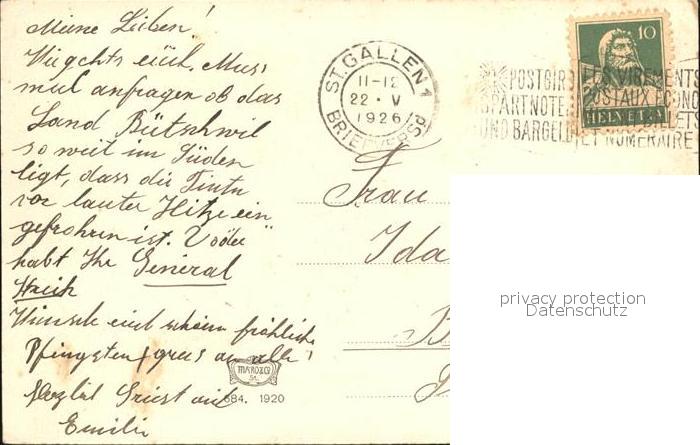 Meine Lieben!
Wie gehts euch. Muss
mal anfragen ob das
Land Bütschwil
so weit im Süden
ligt, dass die Tinte
vor lauter Hitze ein
gefrohren ist. Oder
habt Ihr General
Streik
Wünsche euch schöne fröhliche
Pfingsten, grus an alle!
Herzlich Grüsst euch
Emilie
ST. GALLEN 1
11-12
22 · V
1926
BRIEFVERSD.
10
HELVETIA
POSTGIR
LES VIREMENTS
SPART NOTE
POSTAUX ECONO
UND BARGELD
NUMERAIRE
Frau
Ida
B
684. 1920
privacy protection
Datenschutz